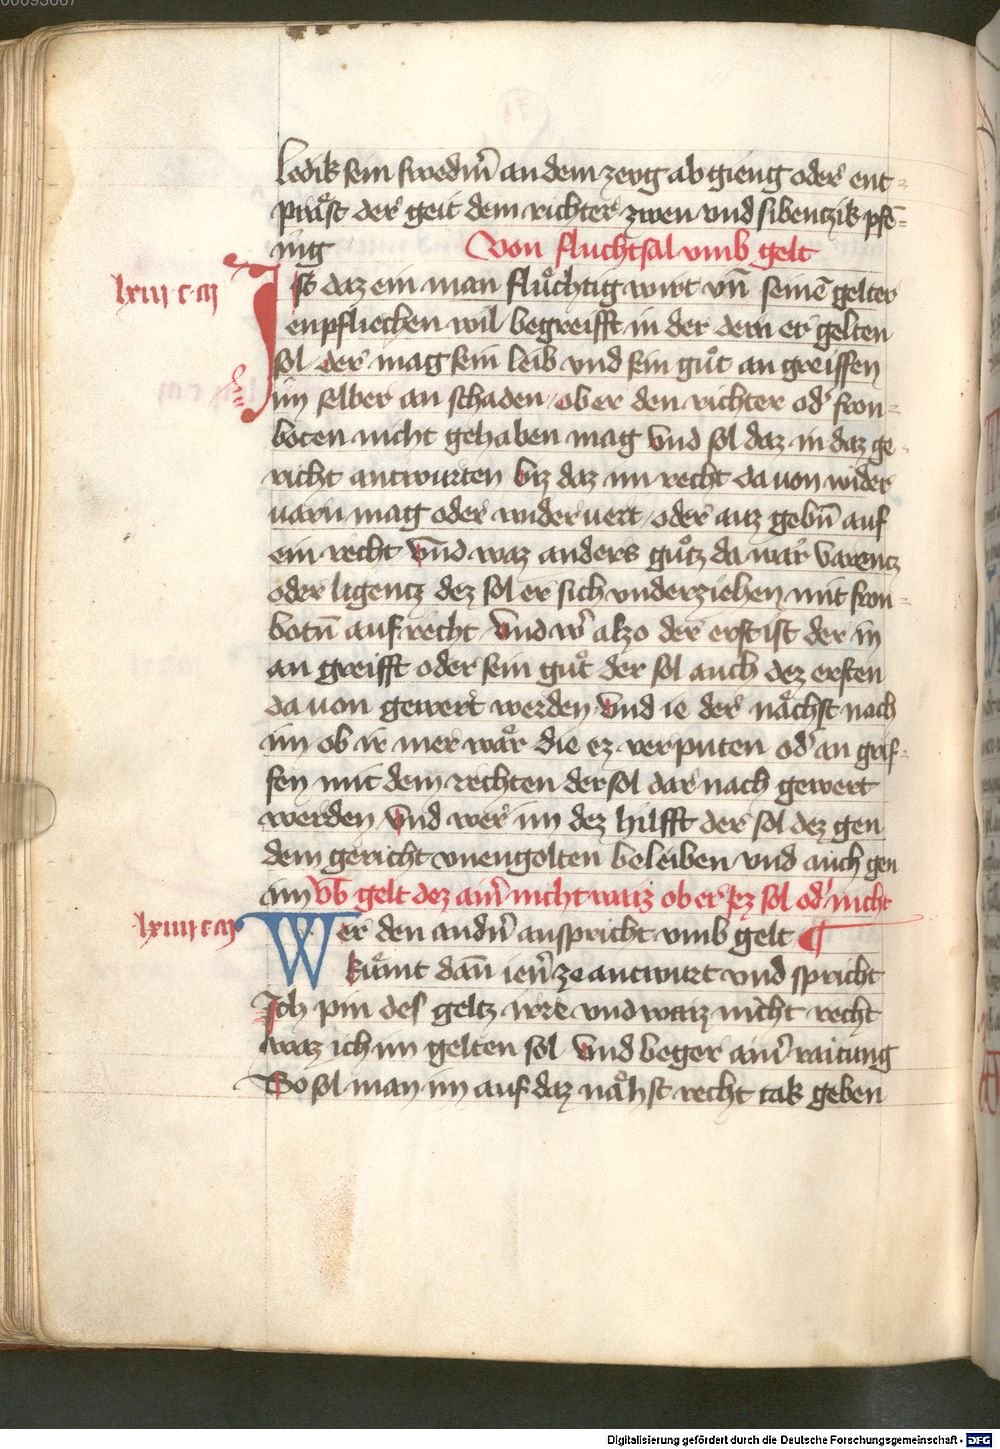 00093667
ledik sein swedm̄ an dem zeug ab gieng oder ent-
präst der geit dem richter zwen und sibentzik pfē-
ning Von fluchtsal umb gelt
lxiii c m
Ist daz ein man flüchtig wirt vn̄ seinē gelter
enpfliechen wil begreifft in der dem er gelten
sol der mag sein leib vnd sein gůt an greiffen
im selber an schaden ob er den richter od' fron-
boten nicht gehaben mag vnd sol daz in daz ge-
richt antwurten biz daz im recht da uon wider
uarn mag oder wider uert oder auz gebn̄ auf
ein recht vnd waz anders gůtz da wär varentz
oder ligentz dez sol er sich vnderziehen mit fron-
botn̄ auf recht vnd w' alzo der erst ist der in
an greifft oder sein gůt der sol auch dez ersten
da uon gewert werden vnd ie der nächst nach
im ob ir mer wär die ez verputen od' an grif-
fen mit dem rechten der sol dar nach gewert
werden vnd wer im dez hilfft der sol dez gen
dem gericht vnengolten beleiben vnd auch gen
im vb gelt dez ain' nicht waiz ob er ez sol od' nicht
lxiiii c m
Wer den andn̄ anspricht vmb gelt ¶
kümt dan̄ ien' ze antwurt vnd spricht
Ich pin des geltz irre vnd waiz nicht recht
waz ich im gelten sol vnd beger ain' raitung
So sol man im auf daz nähst recht tak geben
Digitalisierung gefördert durch die Deutsche Forschungsgemeinschaft - DFG